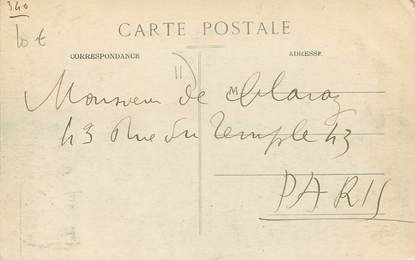 340
10 €
CARTE POSTALE
CORRESPONDANCE
ADRESSE
11
M
Monsieur de
43 Rue du Temple 43
PARIS